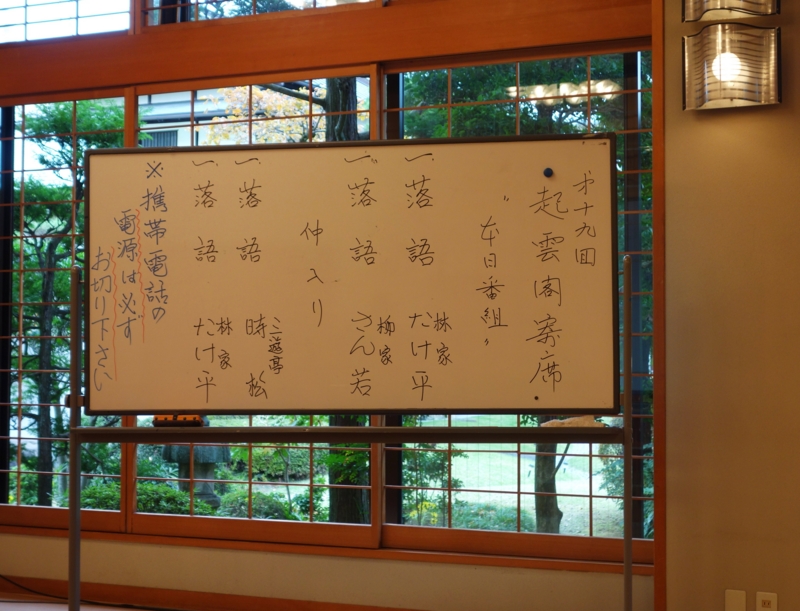 才十九回
起雲閣寄席
“本日番組”
一、落語 林家たけ平
一、落語 柳家さん若
仲入り
一、落語 三遊亭時松
一、落語 林家たけ平
※携帯電話の
電源は必ず
お切り下さい